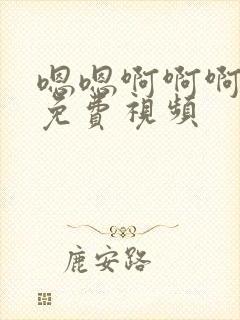 嗯嗯啊啊啊
免費視頻
鹿安路